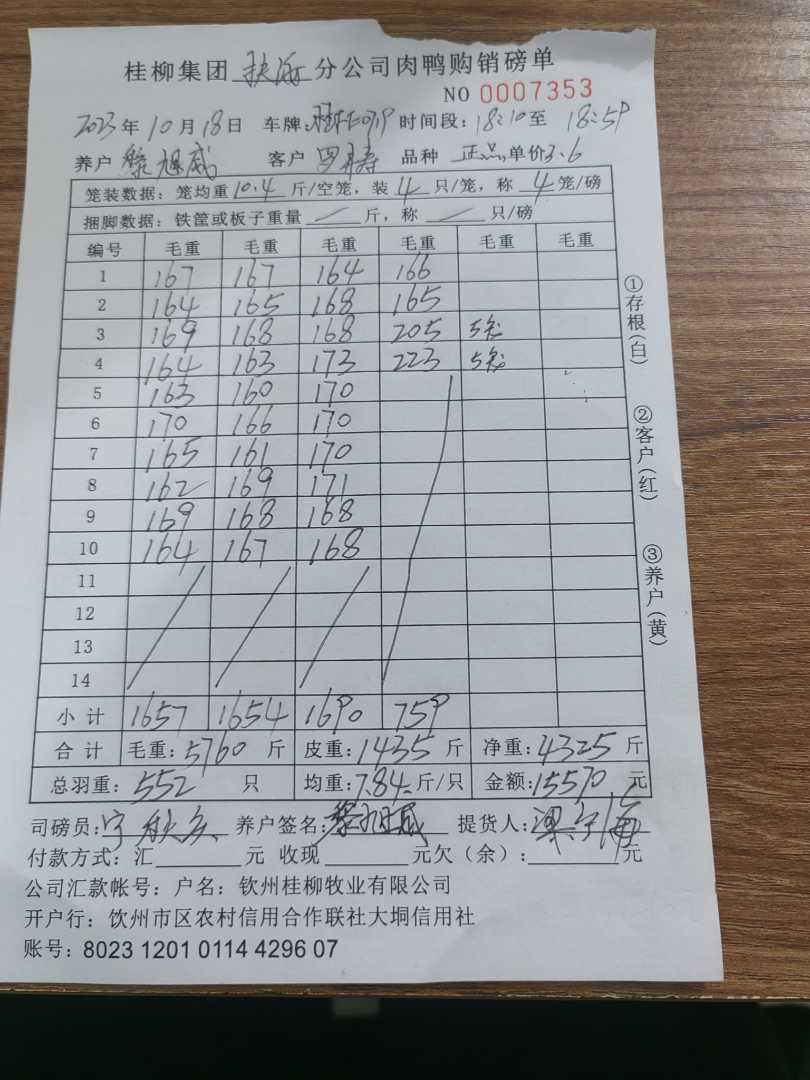 桂柳集团 分公司肉鸭购销磅单
NO 0007353
2023年10月18日 车牌: 时间段:18:10至 18:59
养户 黎旭威 客户 罗寿 品种 正品,单价3.6
笼装数据：笼均重10.4斤/空笼，装4只/笼，称4笼/磅
捆脚数据：铁筐或板子重量 / 斤，称 / 只/磅
编号 毛重 毛重 毛重 毛重 毛重 毛重
1 167 167 164 166
2 164 165 168 165
3 169 168 168 205 5笼
4 164 163 173 223 5笼
5 163 160 170
6 170 166 170
7 165 161 170
8 162 169 171
9 169 168 168
10 164 167 168
11
12
13
14
小计 1657 1654 1690 759
合计 毛重:5760斤 皮重:1435斤 净重:4325斤
总羽重:552只 均重:7.84斤/只 金额:15570元
司磅员: 养户签名:黎旭威 提货人:梁宇海
付款方式：汇 元 收现 元欠（余）: 元
公司汇款帐号：户名：钦州桂柳牧业有限公司
开户行：饮州市区农村信用合作联社大垌信用社
账号：8023 1201 0114 4296 07
①存根(白)
②客户(红)
③养户(黄)